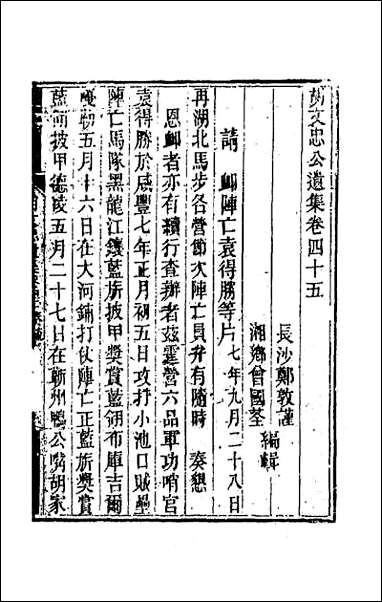 胡文忠公遺集卷四十五
長沙鄭敦謹
湘鄉曾國荃
編輯
請䘏陣亡袁得勝等片七年九月二十八日
再湖北馬步各營節次陣亡員弁有隨時奏懇
恩䘏者亦有續行查辦者茲霆營六品軍功哨官
袁得勝於咸豐七年正月初五日攻打小池口賊壘
陣亡馬隊黑龍江鑲藍旂披甲獎賞藍翎布庫吉爾
慶勒五月十六日在大河鋪打仗陣亡正藍旂獎賞
藍翎披甲德凌五月二十七日在蘄州鴨公嘴胡家